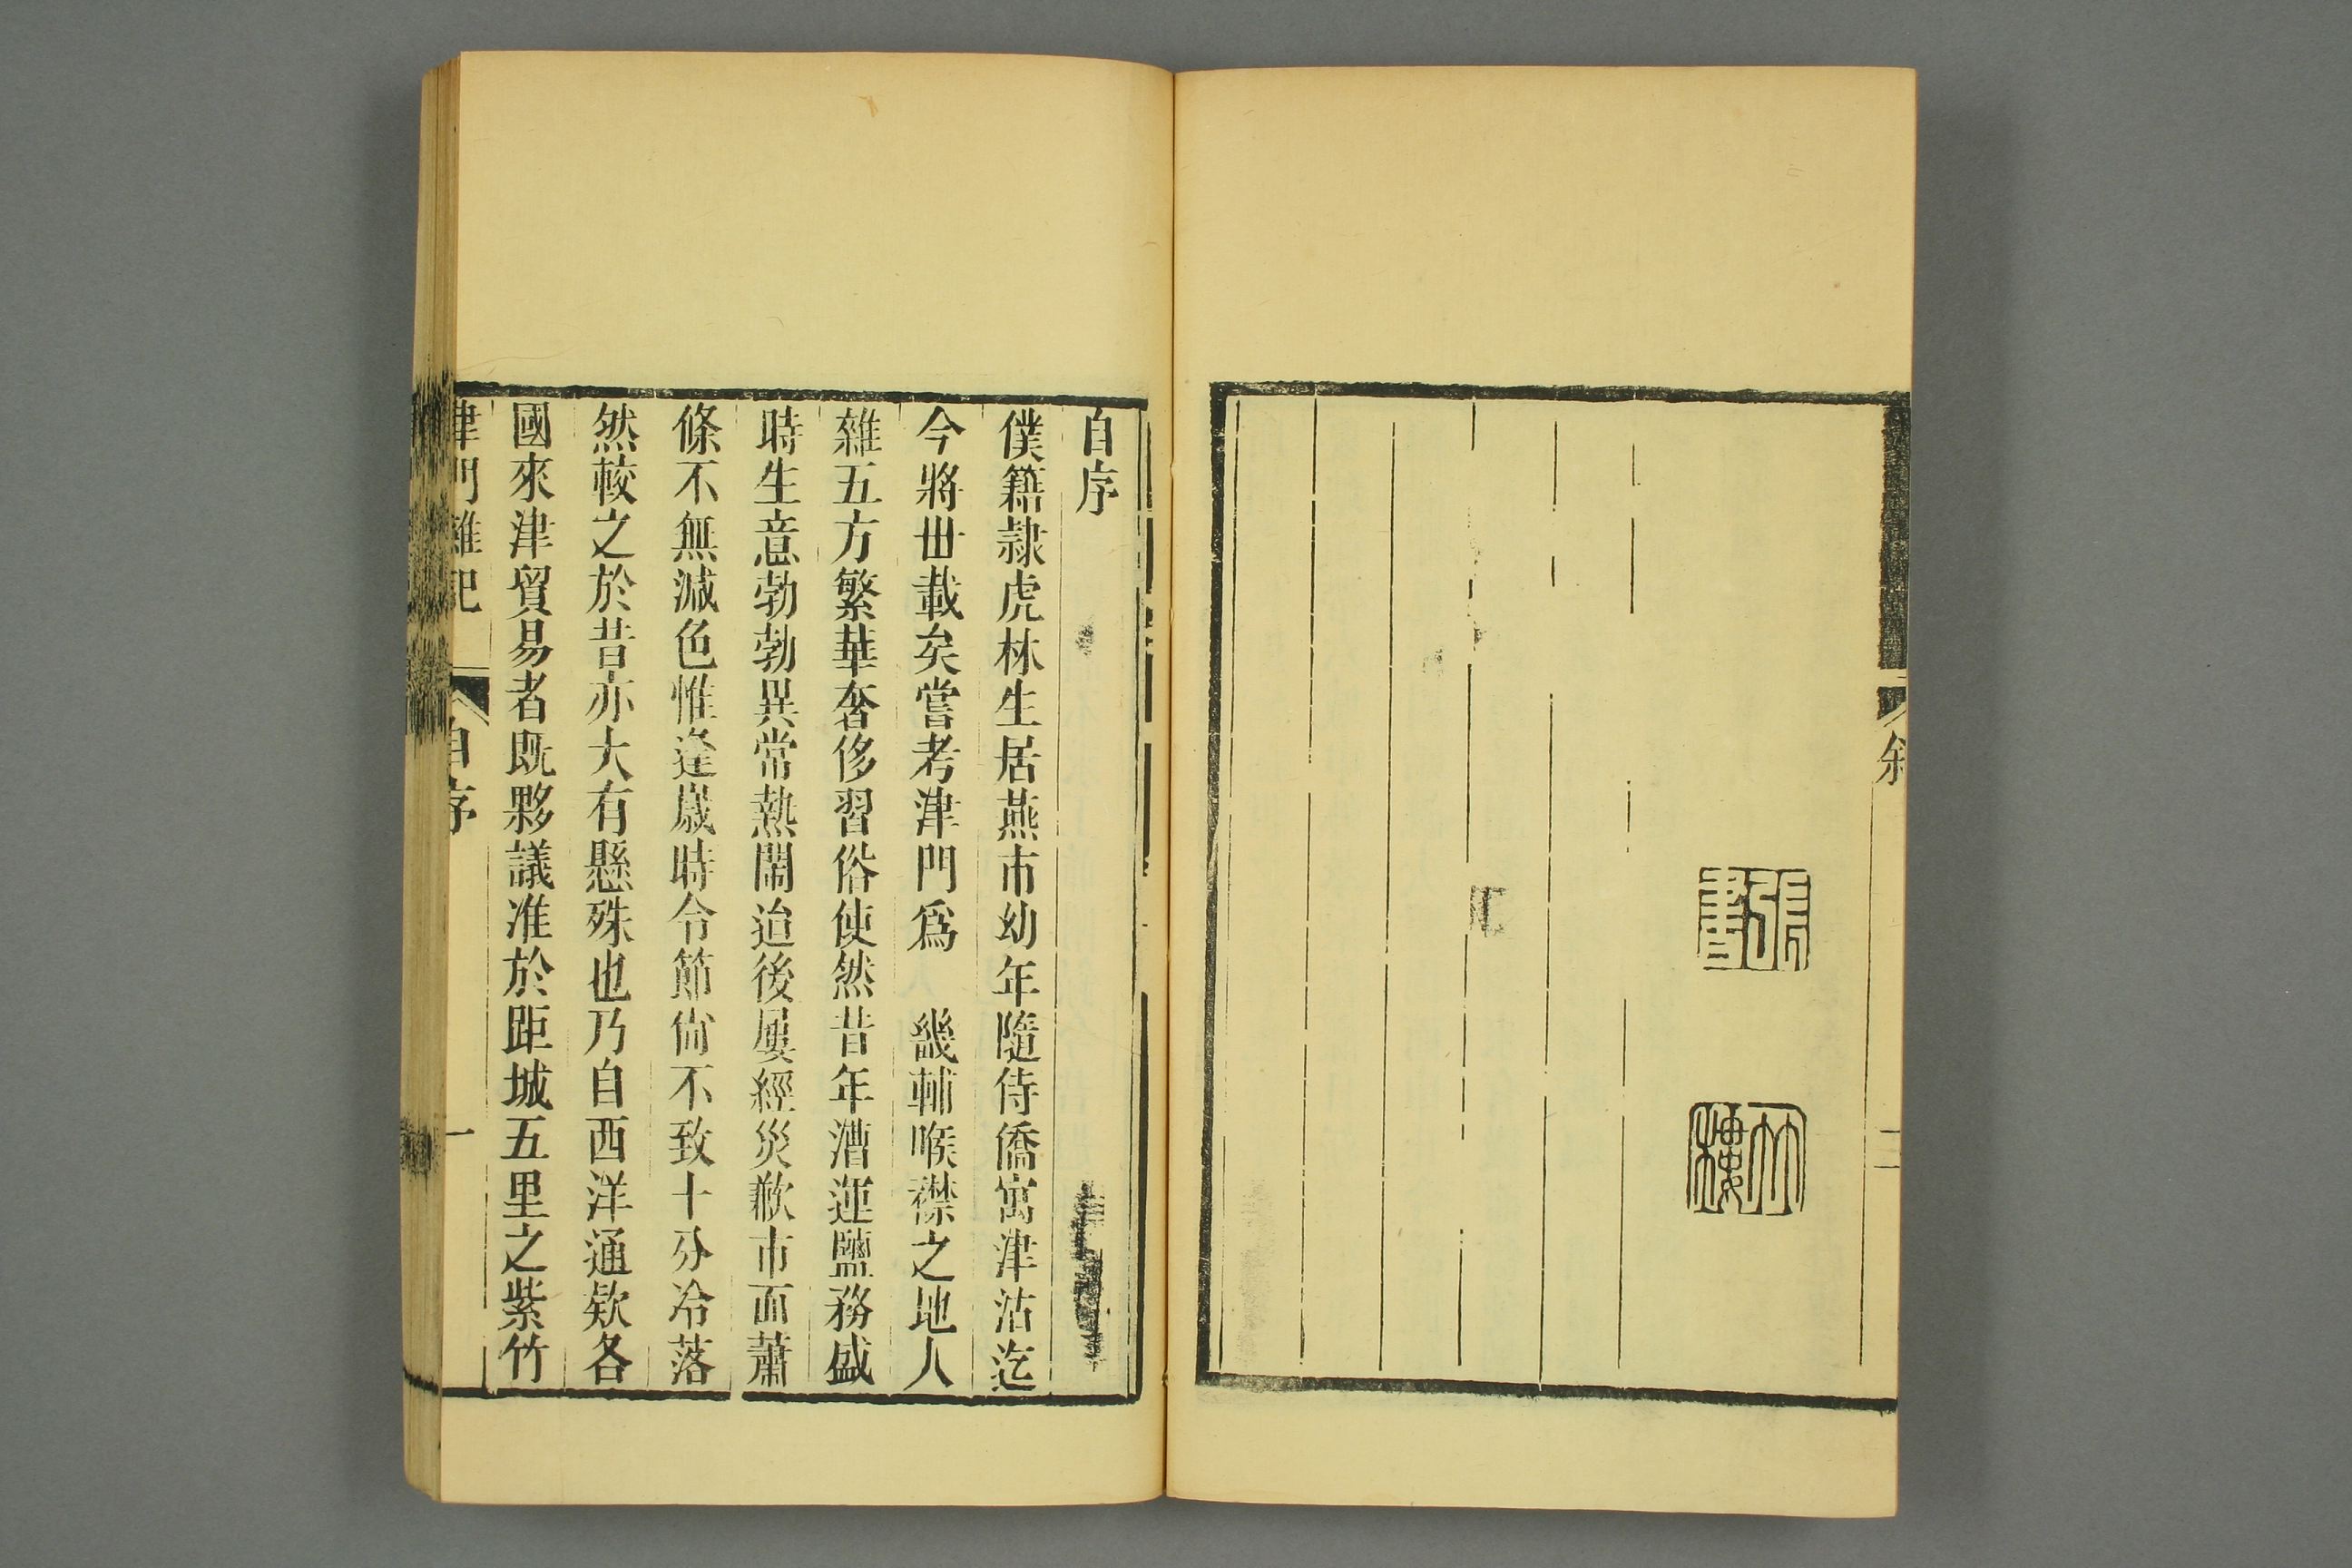 叙
二
張書
竹樓
自序
僕籍隷虎林生居燕市幼年隨侍僑寓津沽迄
今將丗載矣嘗考津門爲　畿輔喉襟之地人
雜五方繁華奢侈習俗使然昔年漕運鹽務盛
時生意勃勃異常熱鬧迨後屢經災歉市面蕭
條不無減色惟逢歲時令節尙不致十分冷落
然較之於昔亦大有懸殊也乃自西洋通欵各
國來津貿易者既夥議准於距城五里之紫竹
津門雜記
自序
一